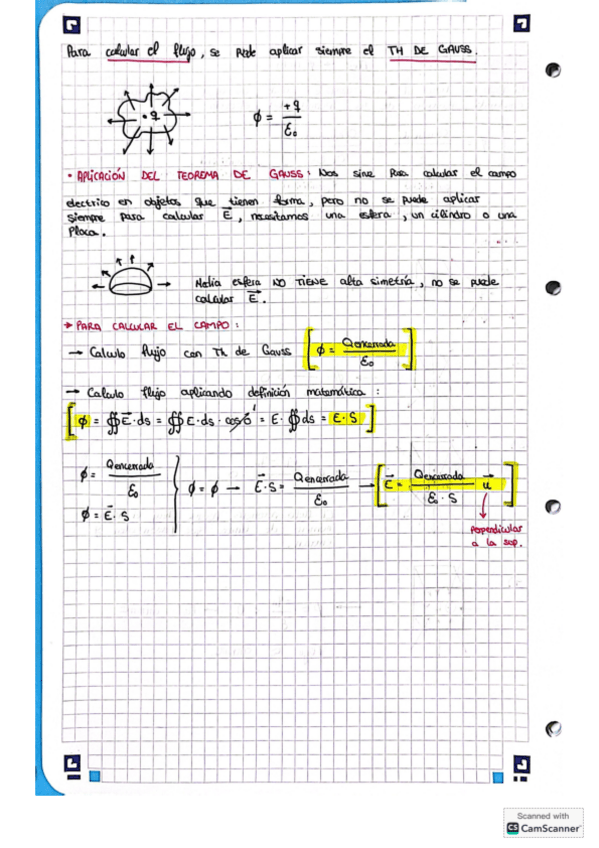 Para calcular el flujo, se puede aplicar siempre el TH DE GAUSS.
• q
ϕ = +q / ε₀
• APLICACIÓN DEL TEOREMA DE GAUSS: Nos sirve para calcular el campo
electrico en objetos que tienen forma, pero no se puede aplicar
siempre para calcular E⃗, necesitamos una esfera, un cilindro o una
Placa.
Media esfera NO TIENE alta simetría, no se puede
calcular E⃗.
→ PARA CALCULAR EL CAMPO:
→ Calculo flujo con Th de Gauss [ϕ = Qencerrada / ε₀]
→ Calculo flujo aplicando definición matemática:
[ϕ = ∯E⃗·ds = ∯E·ds·cos0 1 = E·∯ds = E·S]
ϕ = Qencerrada / ε₀
ϕ = E⃗·S
} ϕ = ϕ → E⃗·S = Qencerrada / ε₀ → [E⃗ = Qencerrada / ε₀·S u⃗]
Perpendicular
a la sup.
Scanned with
CS CamScanner